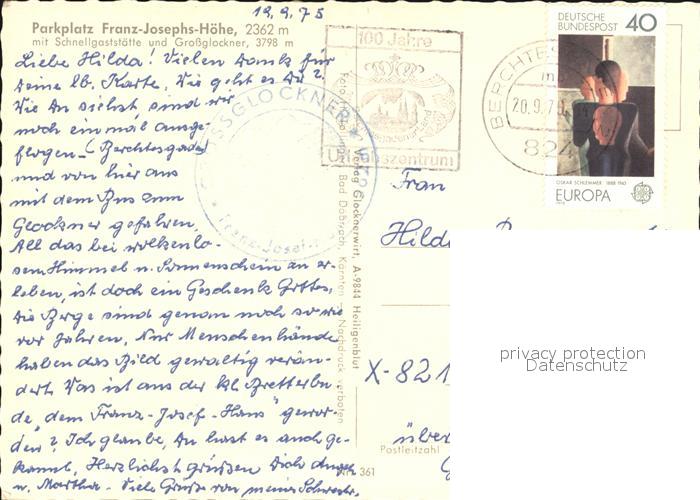 19.9.75
Parkplatz Franz-Josephs-Höhe, 2362 m
mit Schnellgaststätte und Großglockner, 3798 m
Liebe Hilda! Vielen Dank für
Deine lb. Karte. Wie geht es Dir?
Wie Du siehst, sind wir
noch einmal ausge-
flogen - Berchtesgaden
und von hier aus
mit dem Bus zum
Glockner gefahren.
All das bei wolkenlo-
sem Himmel u. Sonnenschein zu er-
leben, ist doch ein Geschenk Gottes.
Die Berge sind genau noch so wie
vor Jahren. Nur Menschenhände
haben das Bild gewaltig verän-
dert. Was ist aus der
de, dem "Franz-Josef-Haus" gewor-
den? Ich glaube, Du hast es auch ge-
kannt. Herzlichst grüßen Dich
u. Martha. Viele Grüße von meiner Schwester.
100 Jahre
Urlaubszentrum
GROSSGLOCKNER
Franz-Josef-
Verlag Glocknerwirt, A-9844 Heiligenblut
Bad Döbriach, Kärnten - Nachdruck verboten
BERCHTES
20.9.75
824
DEUTSCHE
BUNDESPOST
40
OSKAR SCHLEMMER 1888-1943
EUROPA
Frau
Hilda
X-821
über
Postleitzahl
361
privacy protection
Datenschutz